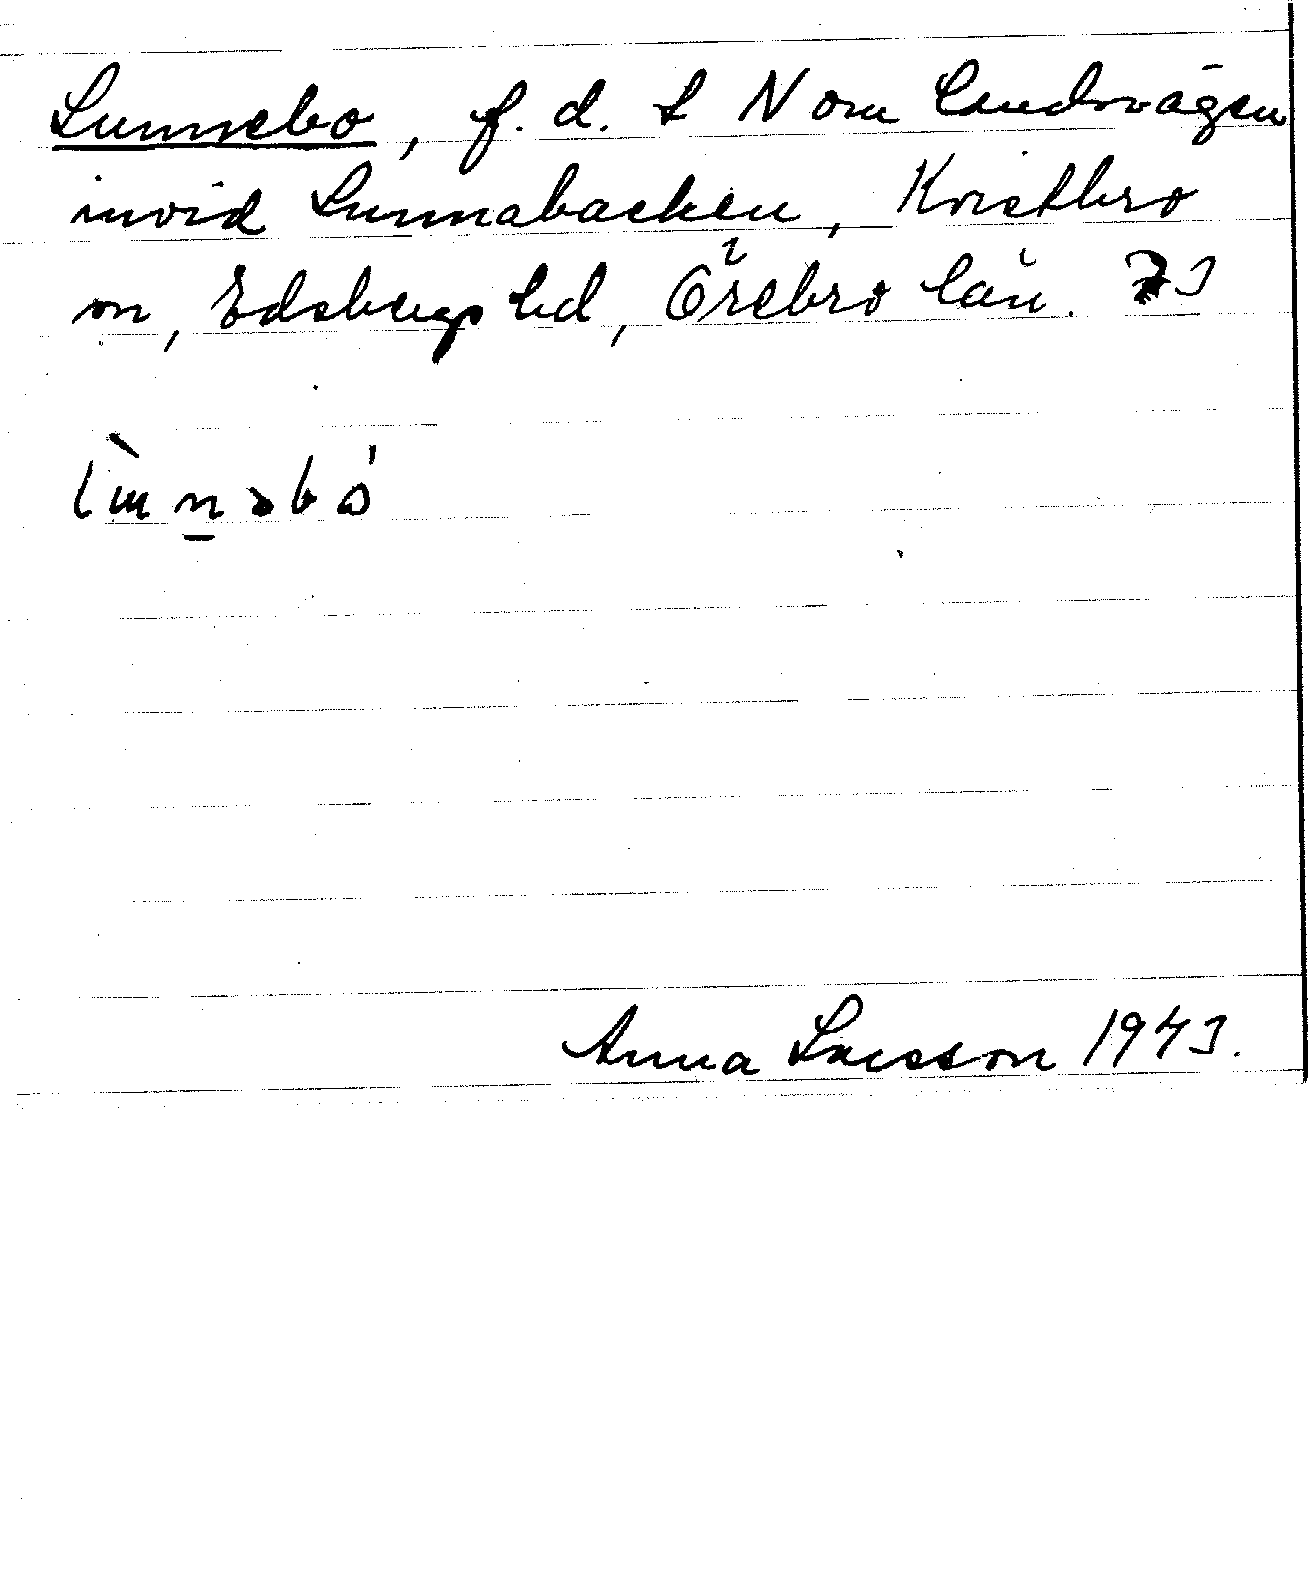 Lunnebo, f. d. t N om landsvägen
invid Lunnabacken, Kvistbro
sn, Edsbergs hd, Örebro län.
Anna Larsson 1943.